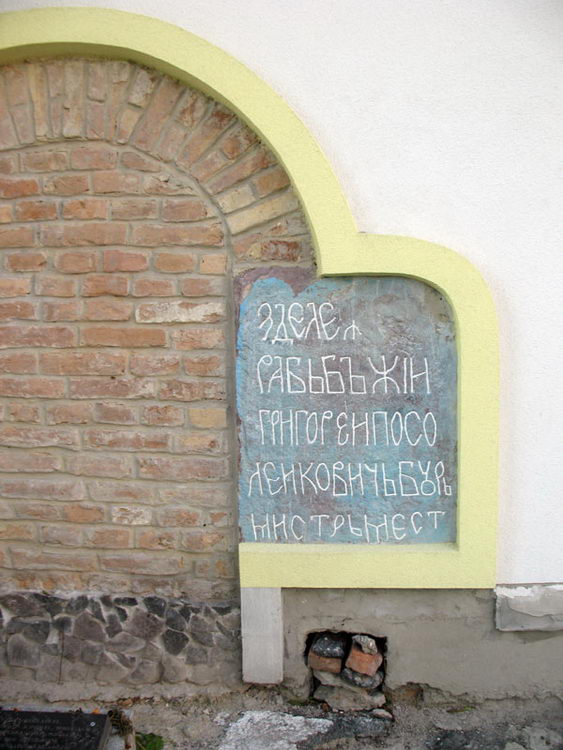 ЗДЕЛЕѦ
РАБЬБЪЖІН
ГРИГОРЕИПОСО
ЛЕИКОВИЧЬБꙊРЪ
МИСТРЪМЕСТ